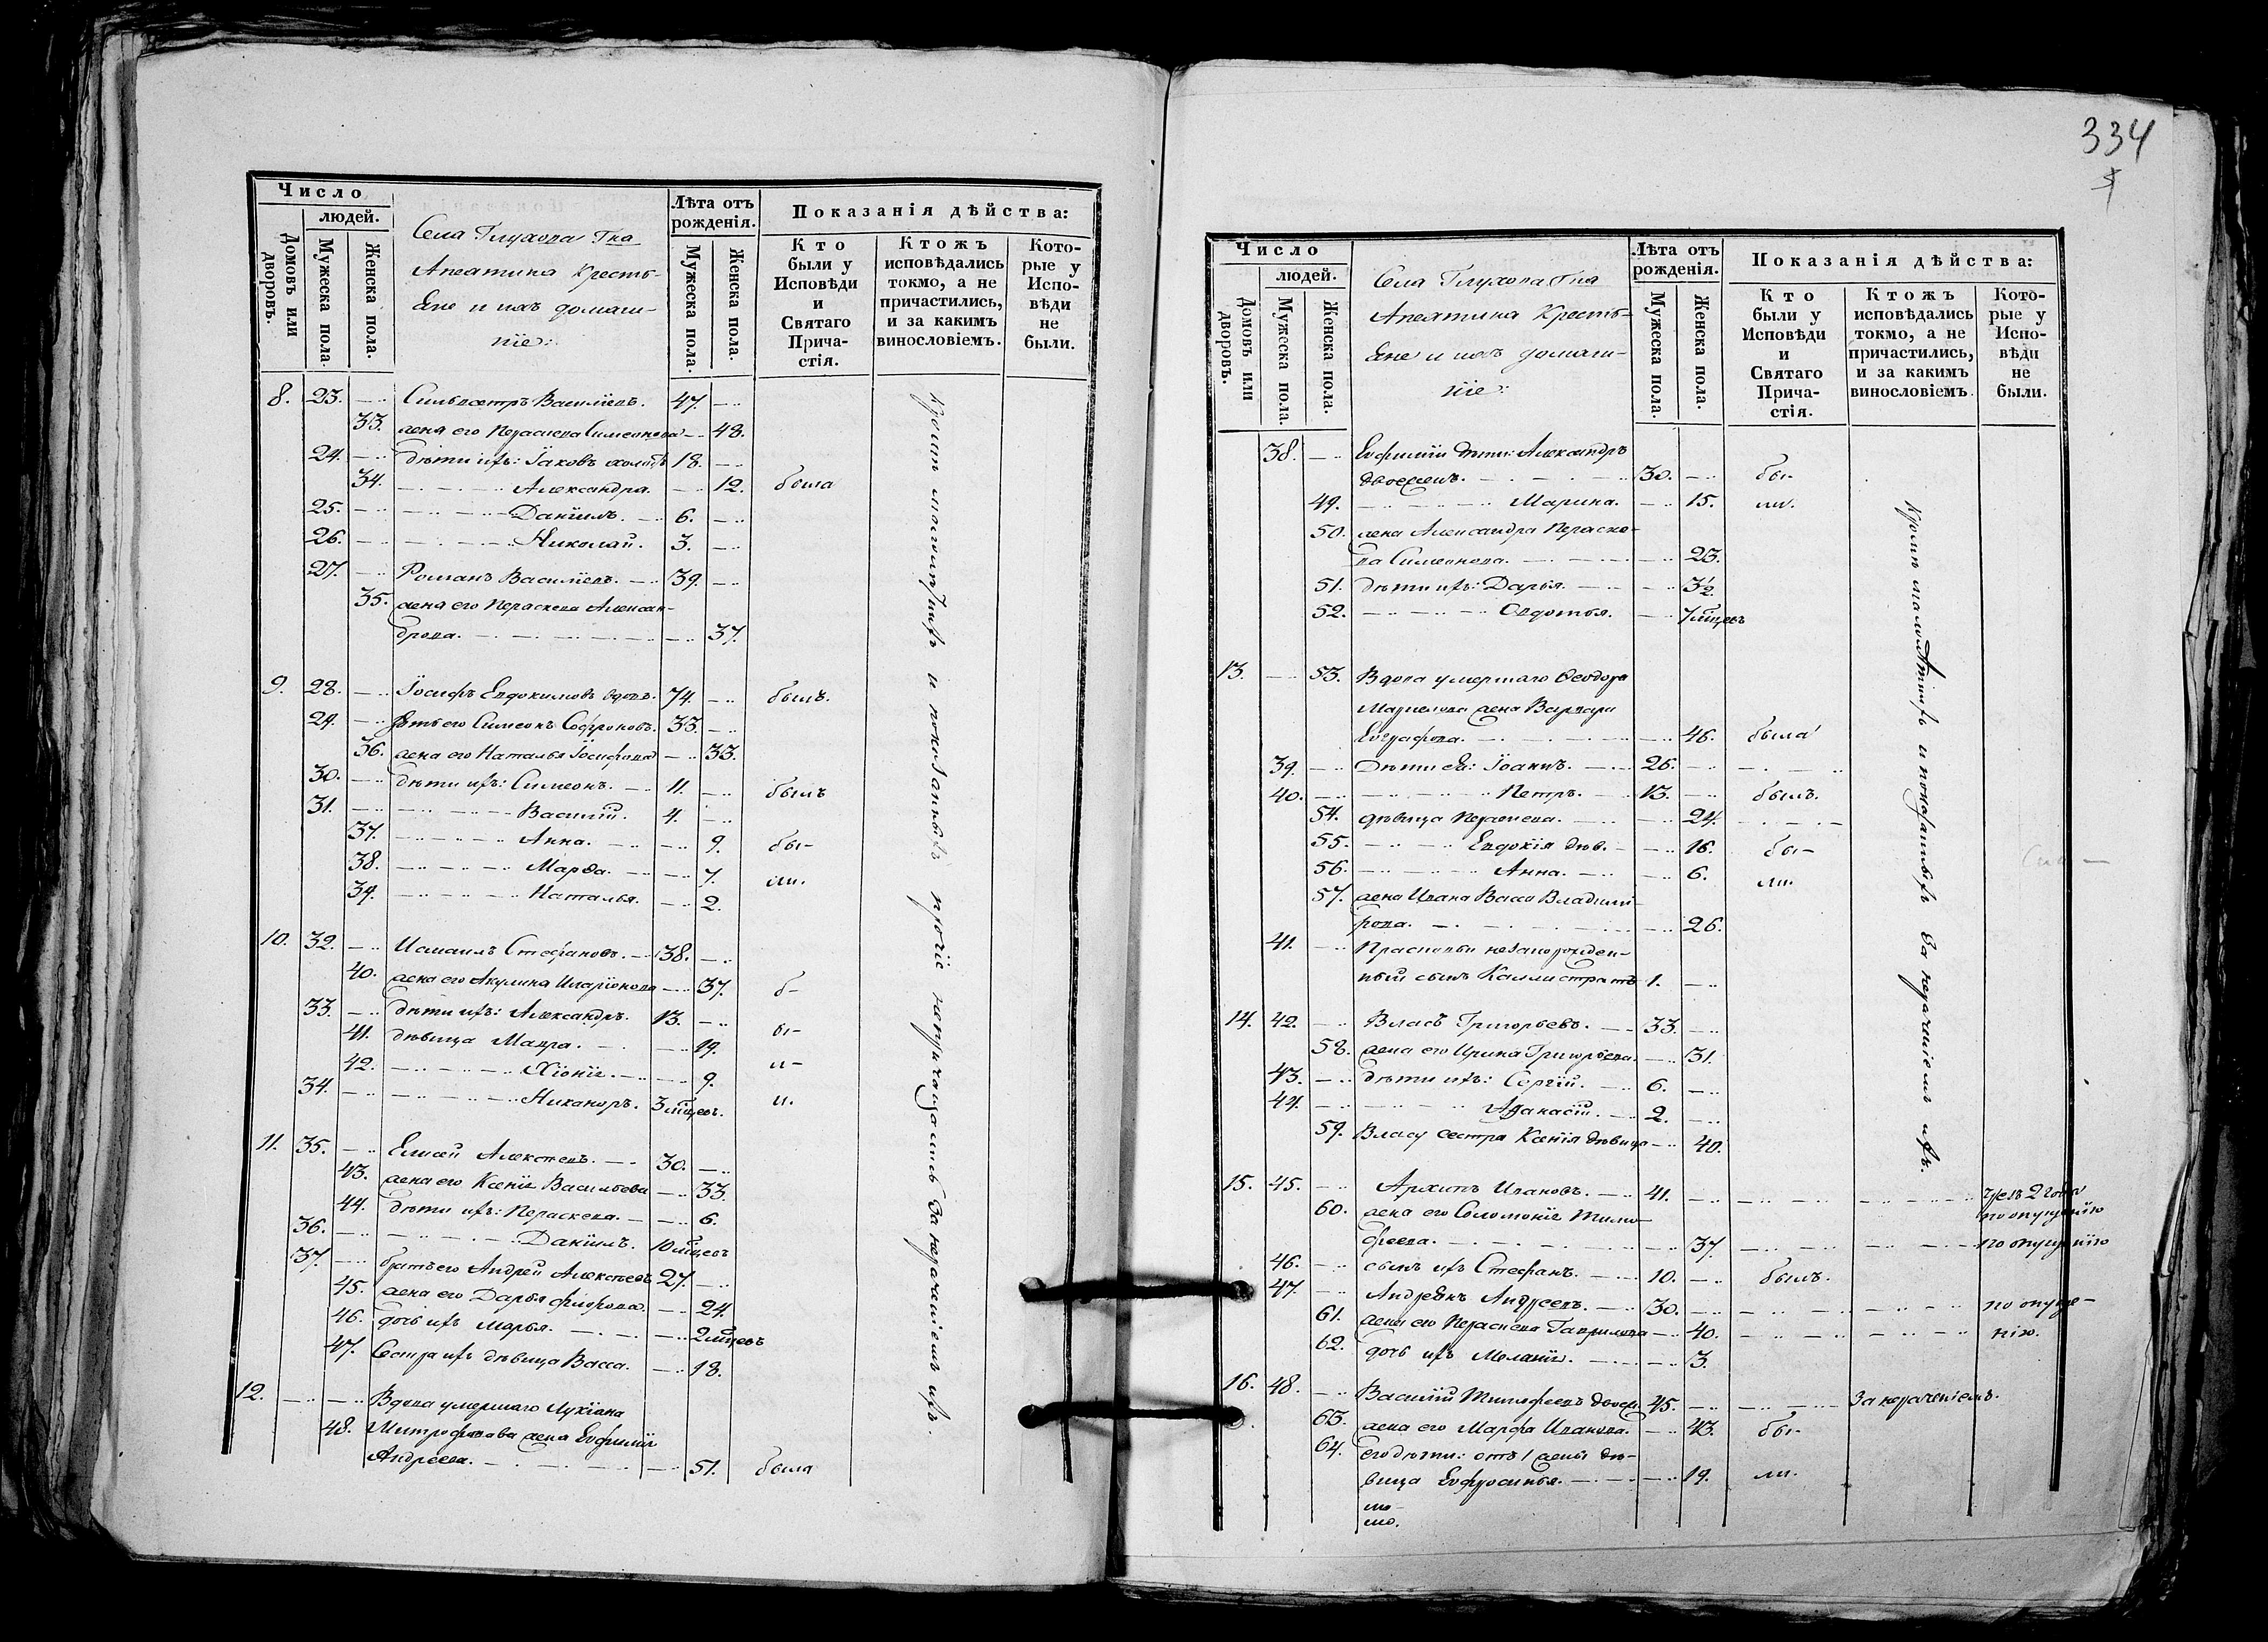 Число
людей.
Домовъ или дворовъ.
Мужеска пола.
Женска пола.
Села Глухова Гна
Апеатина Кресть-
яне и ихъ домаш-
ніе:
Лѣта отъ рожденія.
Мужеска пола.
Женска пола.
Показанія дѣйства:
Кто были у Исповѣди и Святаго Прича-стія.
Ктожъ исповѣдались токмо, а не причастились, и за какимъ винословіемъ.
Кото-рые у Испо-вѣди не были.
8. 23. Сильвестръ Василіевъ. 47.
33. жена его Параскева Симеонова 48.
24. дѣти ихъ: Іаковъ холостъ 18.
34. Александра. 12. была
25. Даніилъ. 6.
26. Николай. 3.
27. Романъ Василіевъ. 39.
35. жена его Параскева Алексан-
дрова. 37.
9. 28. Іосифъ Евдокимовъ вдовъ. 74. былъ.
29. зять его Симеонъ Софроновъ. 33.
36. жена его Наталья Іосифова 33.
30. дѣти ихъ: Симеонъ. 11. былъ
31. Василій. 4.
37. Анна. 9. бы-
38. Марѳа. 7. ли.
39. Наталья. 2.
10. 32. Исмаилъ Стефановъ. 38.
40. жена его Акулина Иларіонова 37. б-
33. дѣти ихъ: Александръ. 13.
41. дѣвица Мавра. 19. ы-
42. Хіонія. 9. л-
34. Никаноръ. 3 мцевъ. и.
11. 35. Елисей Алексѣевъ. 30.
43. жена его Ксенія Васильева 33.
44. дѣти ихъ: Параскева. 6.
36. Даніилъ. 10 мцевъ
37. братъ его Андрей Алексѣевъ 27.
45. жена его Дарья 24.
46. дочь ихъ Марья. 2 мцевъ
47. Сестра ихъ дѣвица Васса. 18.
12. Вдова умершаго Лукіана
48. Митрофанова жена Евфимія
Андреева. 51. была
Кромѣ малолѣтнихъ и показанныхъ прочіе непричащались за нераченіемъ ихъ.
334
Число
людей.
Домовъ или дворовъ.
Мужеска пола.
Женска пола.
Села Глухова Гна
Апеатина Кресть-
яне и ихъ домаш-
ніе:
Лѣта отъ рожденія.
Мужеска пола.
Женска пола.
Показанія дѣйства:
Кто были у Исповѣди и Святаго Прича-стія.
Ктожъ исповѣдались токмо, а не причастились, и за какимъ винословіемъ.
Кото-рые у Испо-вѣди не были.
38. Евфиміи дѣти: Александръ
двоежен. 30. бы-
49. Марина. 15. ли.
50. жена Александра Параске-
ва Симеонова. 23.
51. дѣти ихъ: Дарья. 3½
52. Евдотья. 7 мцевъ
13. 53. Вдова умершаго Ѳеодора
жена Варвара
Евграфова. 46. была
39. Дѣти ея: Іоаннъ. 26.
40. Петръ. 13. былъ.
54. дѣвица Параскева. 24.
55. Евдокія дѣв. 16. бы-
56. Анна. 6. ли.
57. жена Ивана Васса Владими-
рова. 26.
41. Прасковьи незаконорожден-
ный сынъ Каллистратъ 1.
14. 42. Власъ Григорьевъ. 33.
58. жена его Ирина Григорьева. 31.
43. дѣти ихъ: Сергій. 6.
44. Аѳанасій. 2.
59. Власу сестра Ксенія дѣвица 40.
15. 45. Архипъ Ивановъ. 41. чрезъ 2 года по опущенію
60. жена его Соломонія Тимо-
феева. 37. по опущенію
46. сынъ ихъ Стефанъ. 10. былъ.
47. Андреянъ Андреевъ. 30. по опуще-
61. жена его Параскева Гаврилова 40. нію.
62. дочь ихъ Меланія. 3.
16. 48. Василій Тимофеевъ двоеж. 45. За нераченіемъ.
63. жена его Марфа Иванова. 43. бы-
64. его дѣти: отъ 1 жены дѣ-
вица Евфросинья. 19. ли.
Кромѣ малолѣтнихъ и показанныхъ за нераченіемъ ихъ.